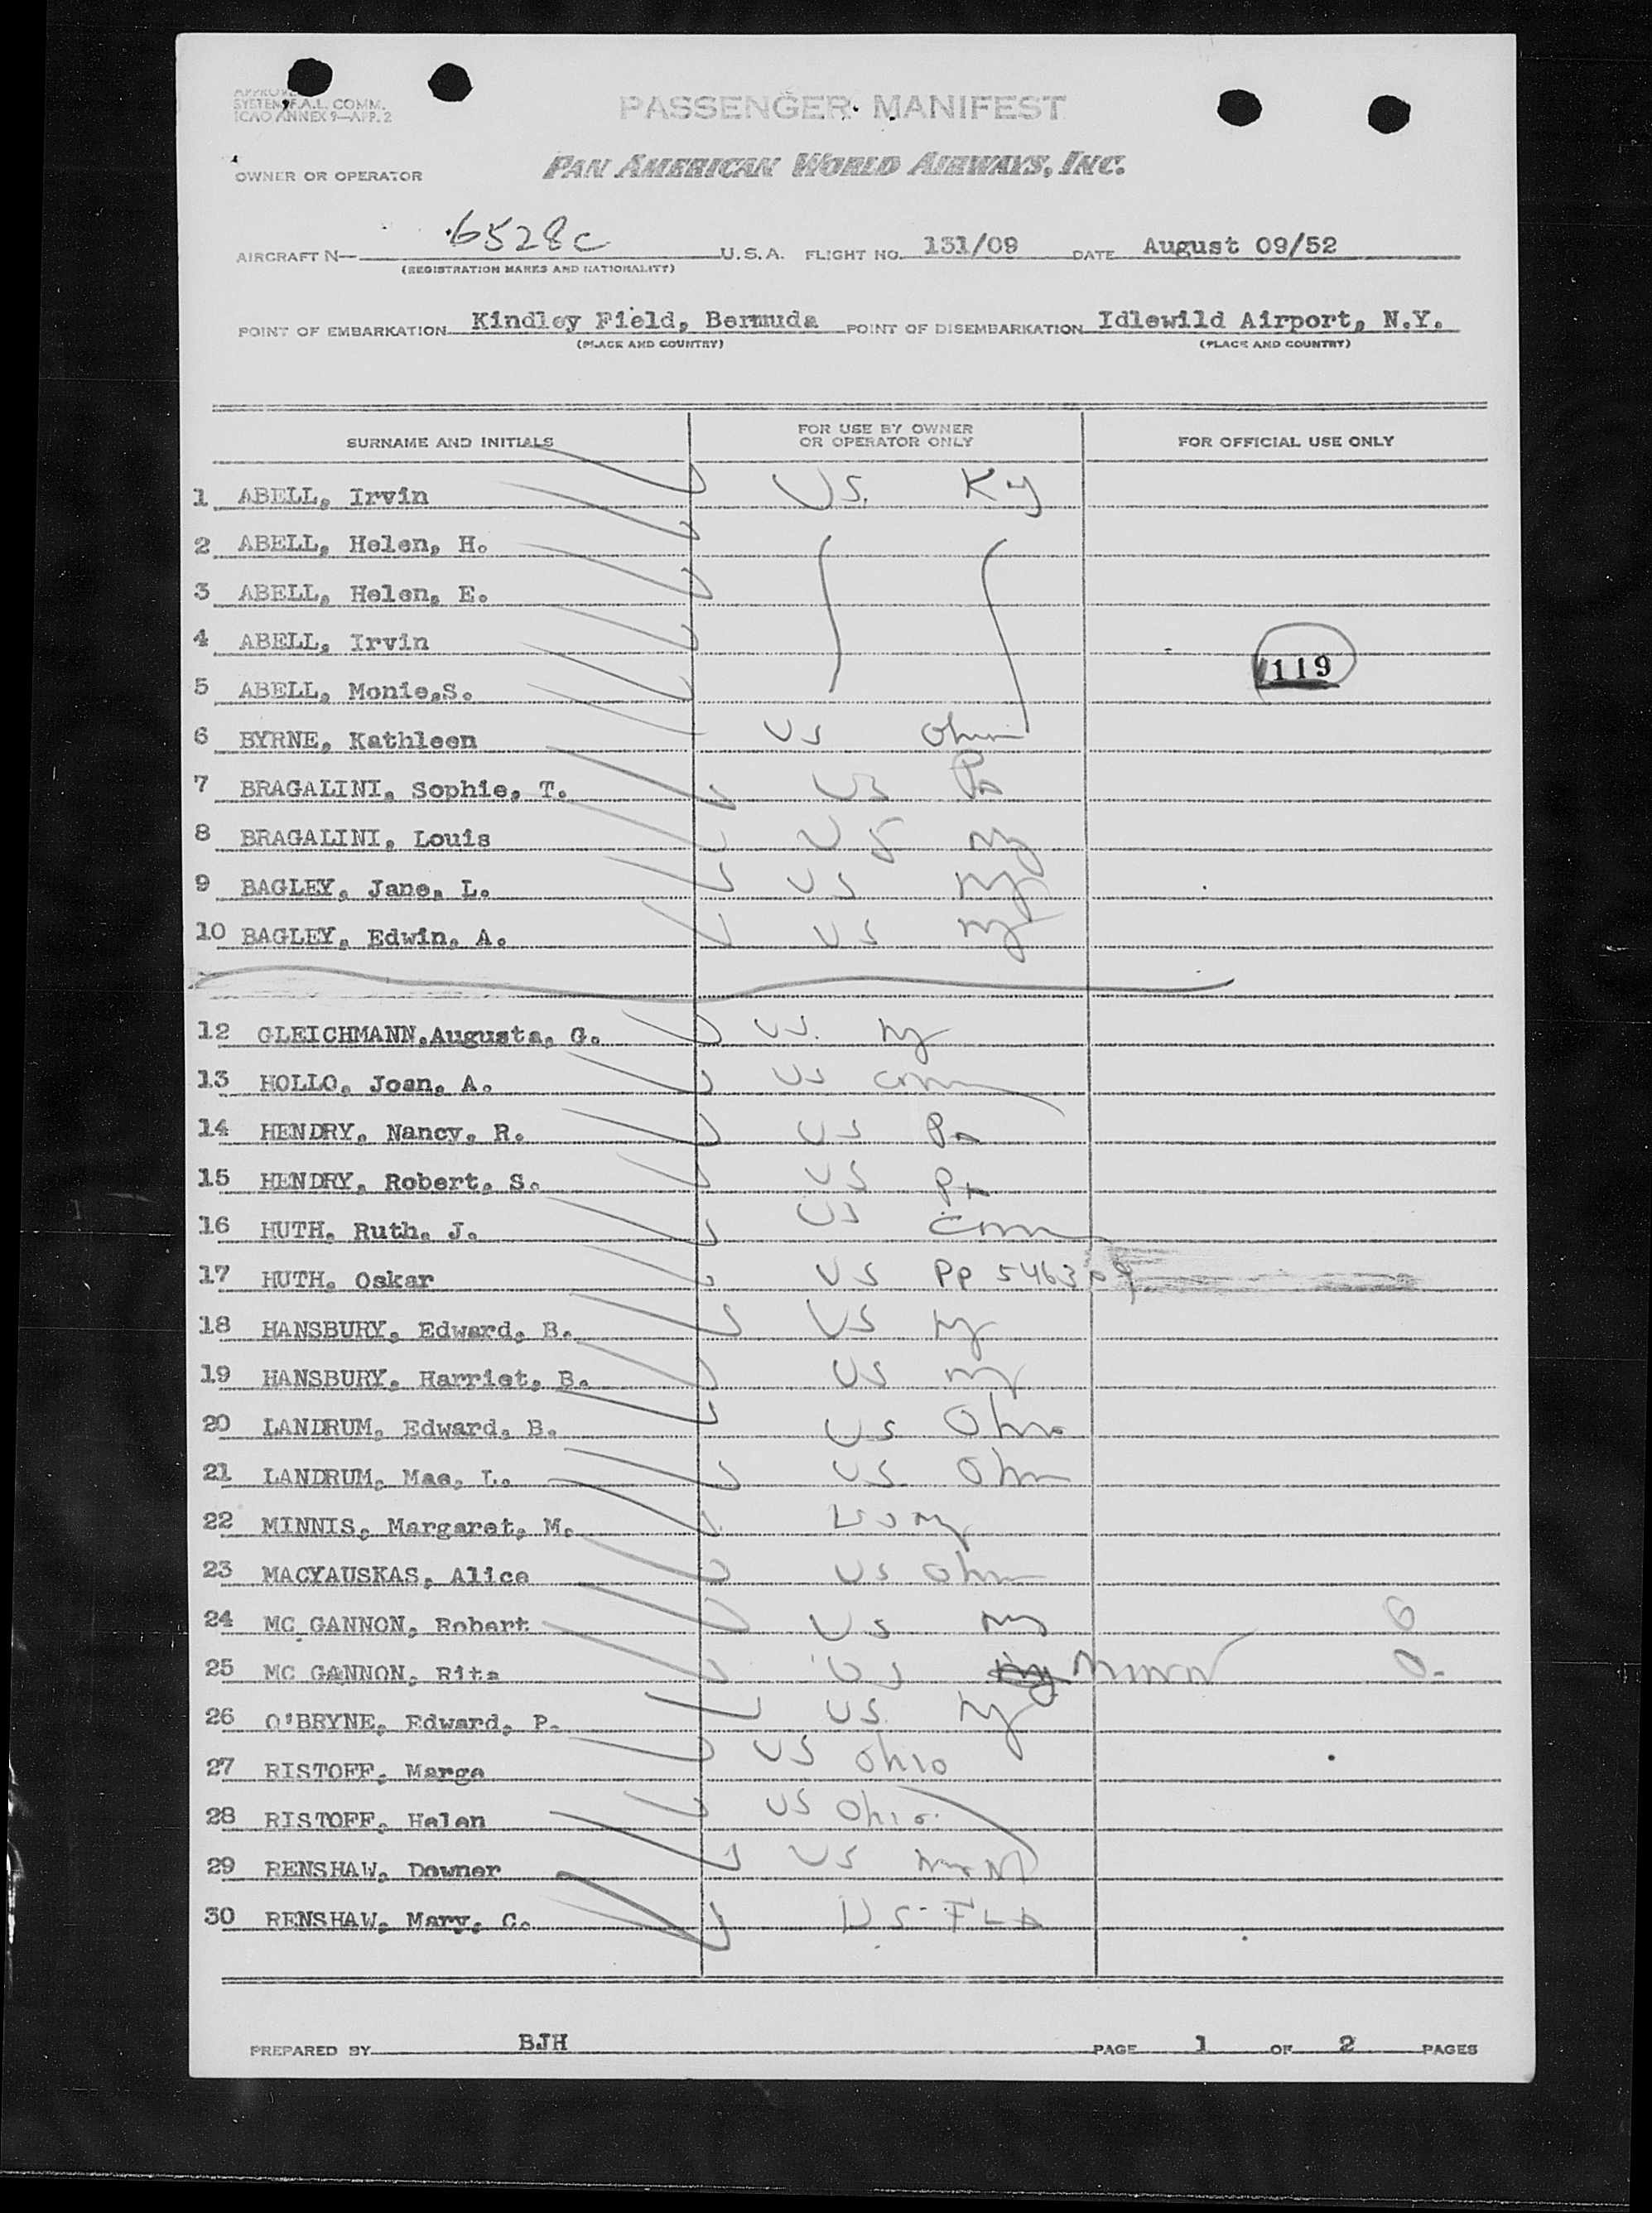 SYSTEM F.A.L. COMM.
ICAO ANNEX 9—APP. 2
PASSENGER MANIFEST
OWNER OR OPERATOR PAN AMERICAN WORLD AIRWAYS, INC.
AIRCRAFT N— 6528C U.S.A. FLIGHT NO. 131/09 DATE August 09/52
(REGISTRATION MARKS AND NATIONALITY)
POINT OF EMBARKATION Kindley Field, Bermuda POINT OF DISEMBARKATION Idlewild Airport, N.Y.
(PLACE AND COUNTRY) (PLACE AND COUNTRY)
SURNAME AND INITIALS FOR USE BY OWNER OR OPERATOR ONLY FOR OFFICIAL USE ONLY
1 ABELL, Irvin US. Ky
2 ABELL, Helen, H.
3 ABELL, Helen, E.
4 ABELL, Irvin
119
5 ABELL, Monie,S.
6 BYRNE, Kathleen US Ohio
7 BRAGALINI, Sophie, T. US Pa
8 BRAGALINI, Louis US Ny
9 BAGLEY, Jane, L. US Ny
10 BAGLEY, Edwin, A. US Ny
12 GLEICHMANN,Augusta, G. US. Ny
13 HOLLO, Joan, A. US Conn
14 HENDRY, Nancy, R. US Pa
15 HENDRY, Robert, S. US Pa
16 HUTH, Ruth, J. US Conn
17 HUTH, Oskar US Pp 546309
18 HANSBURY, Edward, B. US Ny
19 HANSBURY, Harriet, B. US Ny
20 LANDRUM, Edward, B. US Ohio
21 LANDRUM, Mae, L. US Ohio
22 MINNIS, Margaret, M. US Ny
23 MACYAUSKAS, Alice US Ohio
24 MC GANNON, Robert US Ny
25 MC GANNON, Rita US
26 O'BRYNE, Edward, P. US. Ny
27 RISTOFF, Marge US Ohio
28 RISTOFF, Helen US Ohio
29 RENSHAW, Downer US
30 RENSHAW, Mary, C. US - FLA
PREPARED BY BJH PAGE 1 OF 2 PAGES